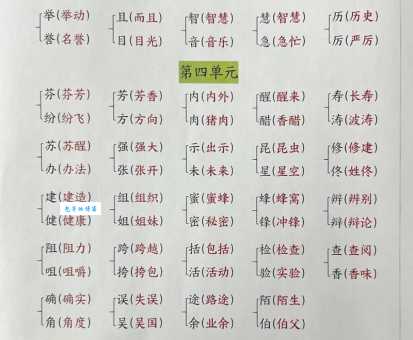 举(举动) 且(而且) 智(智慧) 慧(智慧) 历(历史)
誉(名誉) 目(目光) 音(音乐) 急(急忙) 厉(严厉)
第四单元
芬(芬芳) 芳(芳香) 内(内外) 醒(醒来) 寿(长寿)
纷(纷飞) 方(方向) 肉(猪肉) 醋(香醋) 涛(波涛)
苏(苏醒) 强(强大) 示(出示) 昆(昆虫) 修(修建)
办(办法) 张(张开) 未(未来) 星(星空) 佟(姓佟)
建(建造) 组(组织) 蜜(蜜蜂) 蜂(蜂窝) 辨(辨别)
健(健康) 姐(姐妹) 密(秘密) 锋(冲锋) 辩(辩论)
阻(阻力) 跨(跨越) 括(包括) 检(检查) 查(查阅)
咀(咀嚼) 挎(挎包) 活(活动) 验(实验) 香(香味)
确(确实) 误(失误) 途(路途) 陌(陌生)
角(角度) 吴(吴国) 余(业余) 伯(伯父)